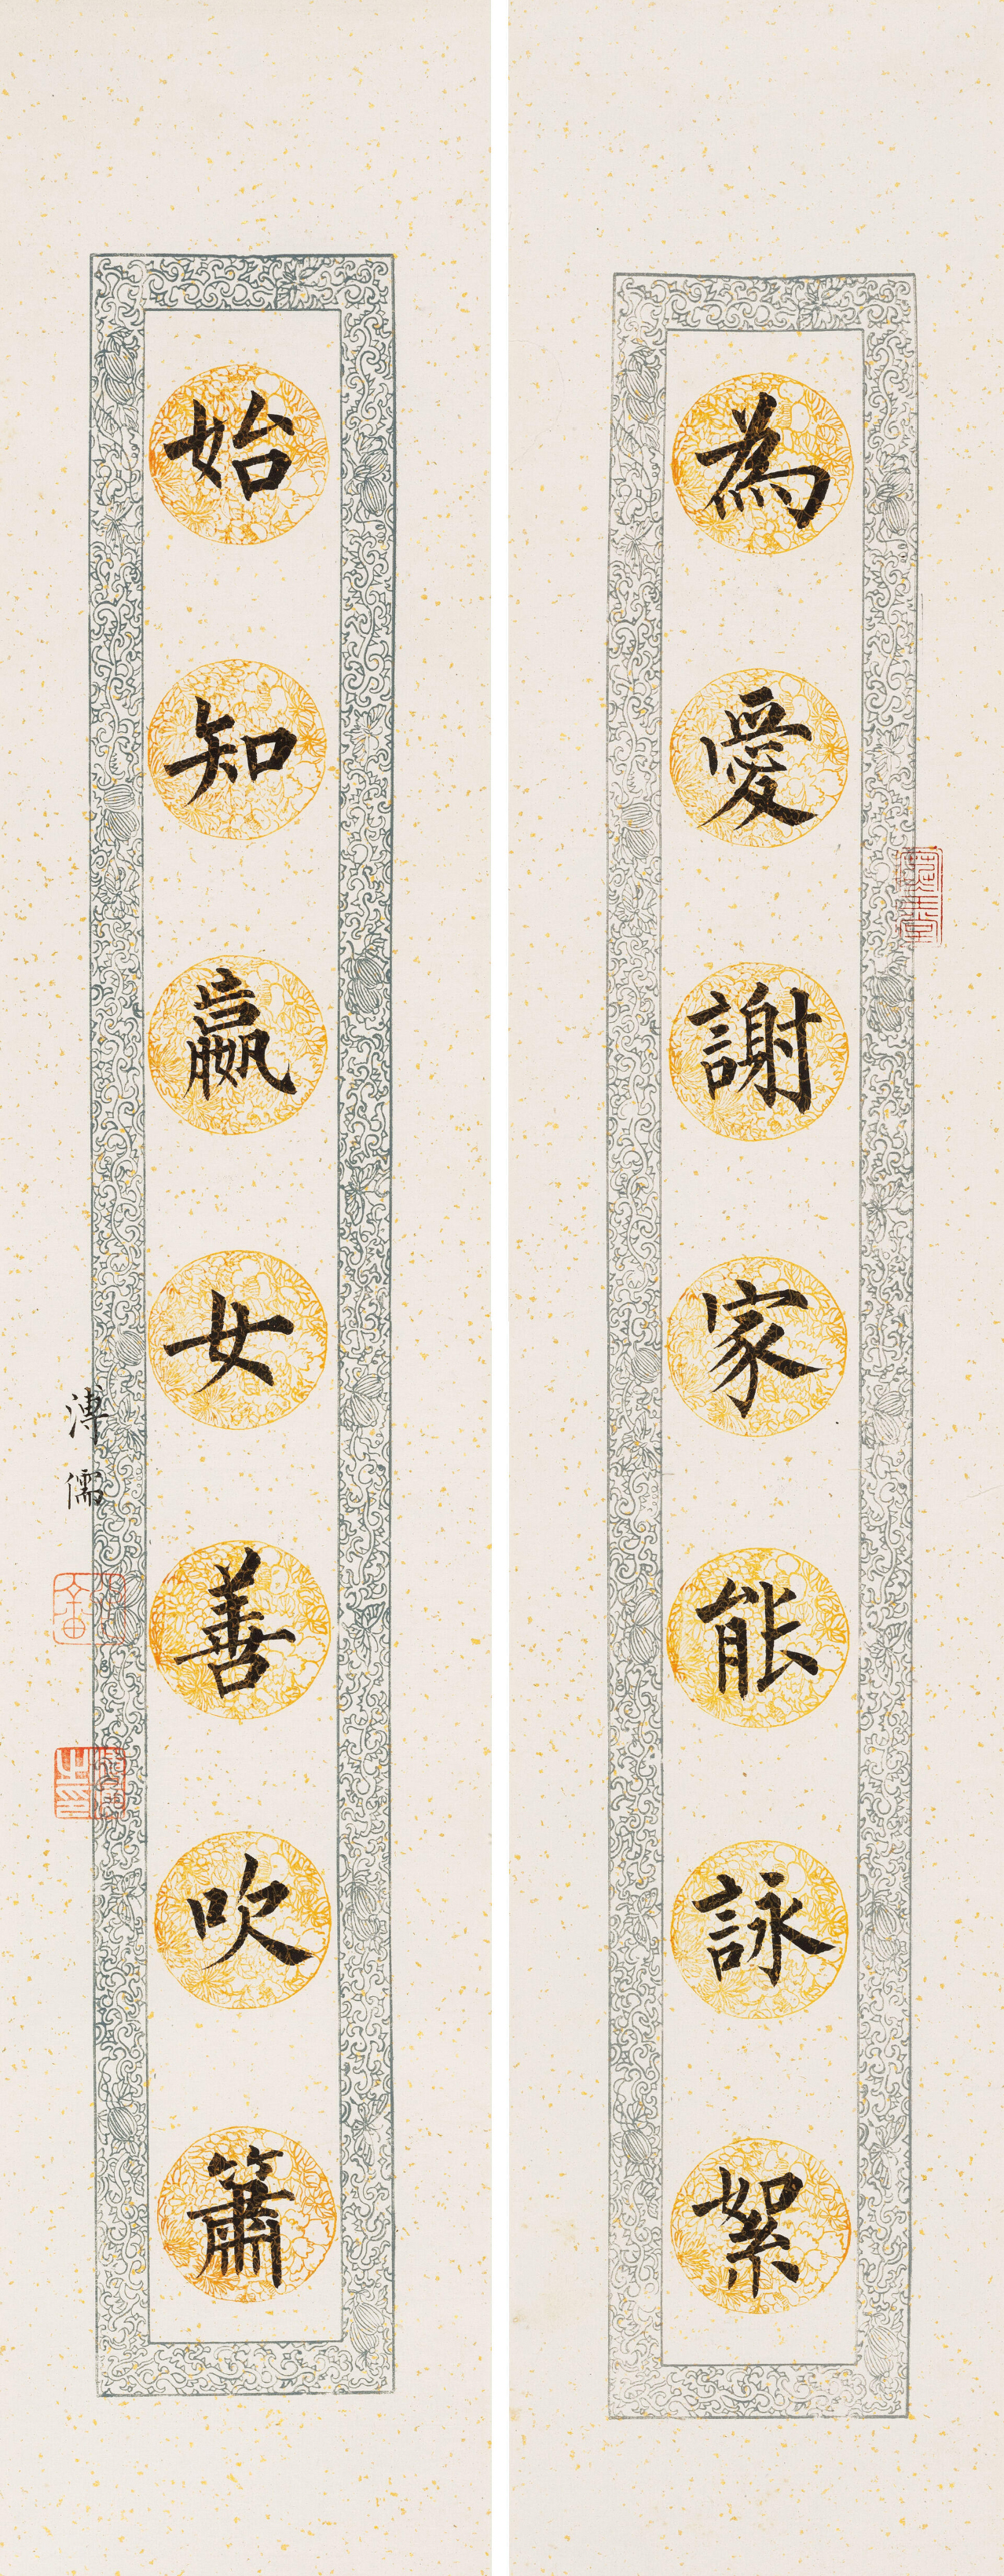 為愛謝家能詠絮
始知嬴女善吹簫
溥儒